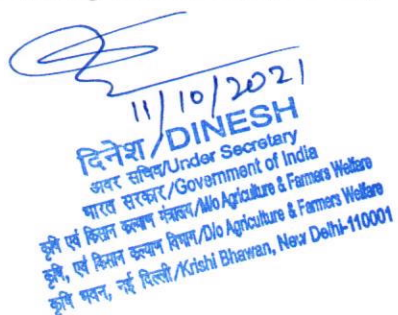 11/10/2021
दिनेश/DINESH
अवर सचिव/Under Secretary
भारत सरकार/Government of India
कृषि एवं किसान कल्याण मंत्रालय/M/o Agriculture & Farmers Welfare
कृषि, एवं किसान कल्याण विभाग/D/o Agriculture & Farmers Welfare
कृषि भवन, नई दिल्ली/Krishi Bhawan, New Delhi-110001